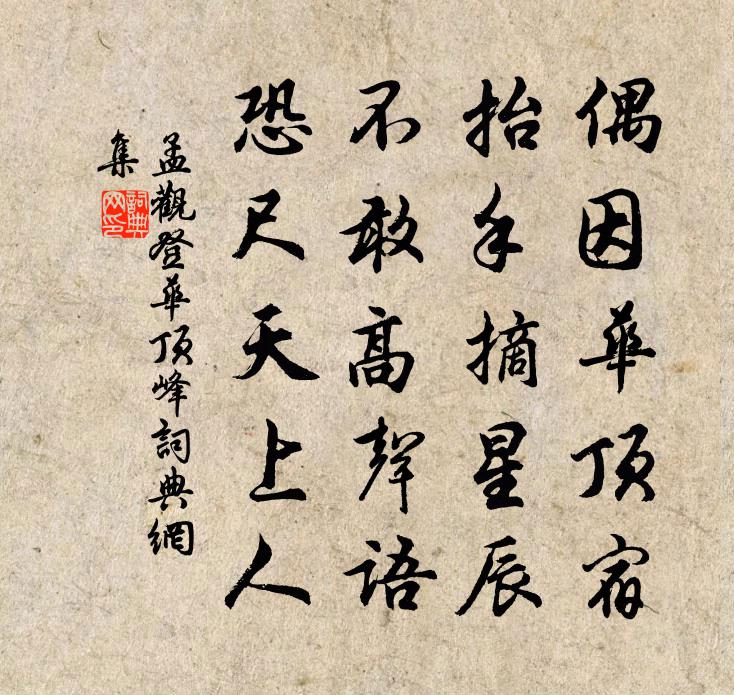 偶因華頂宿
抬手摘星辰
不敢高聲語
恐尺天上人
孟觀登華頂峰詞典網
集
詞典
网印